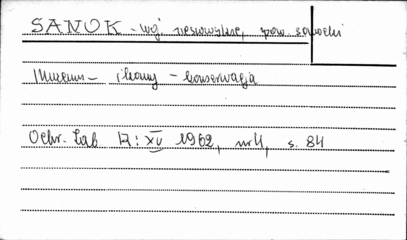 SANOK - woj. rzeszowskie, pow. sanocki
Muzeum - ikony - konserwacja
Ochr. Zab. R: XV 1962, nr 4, s. 84